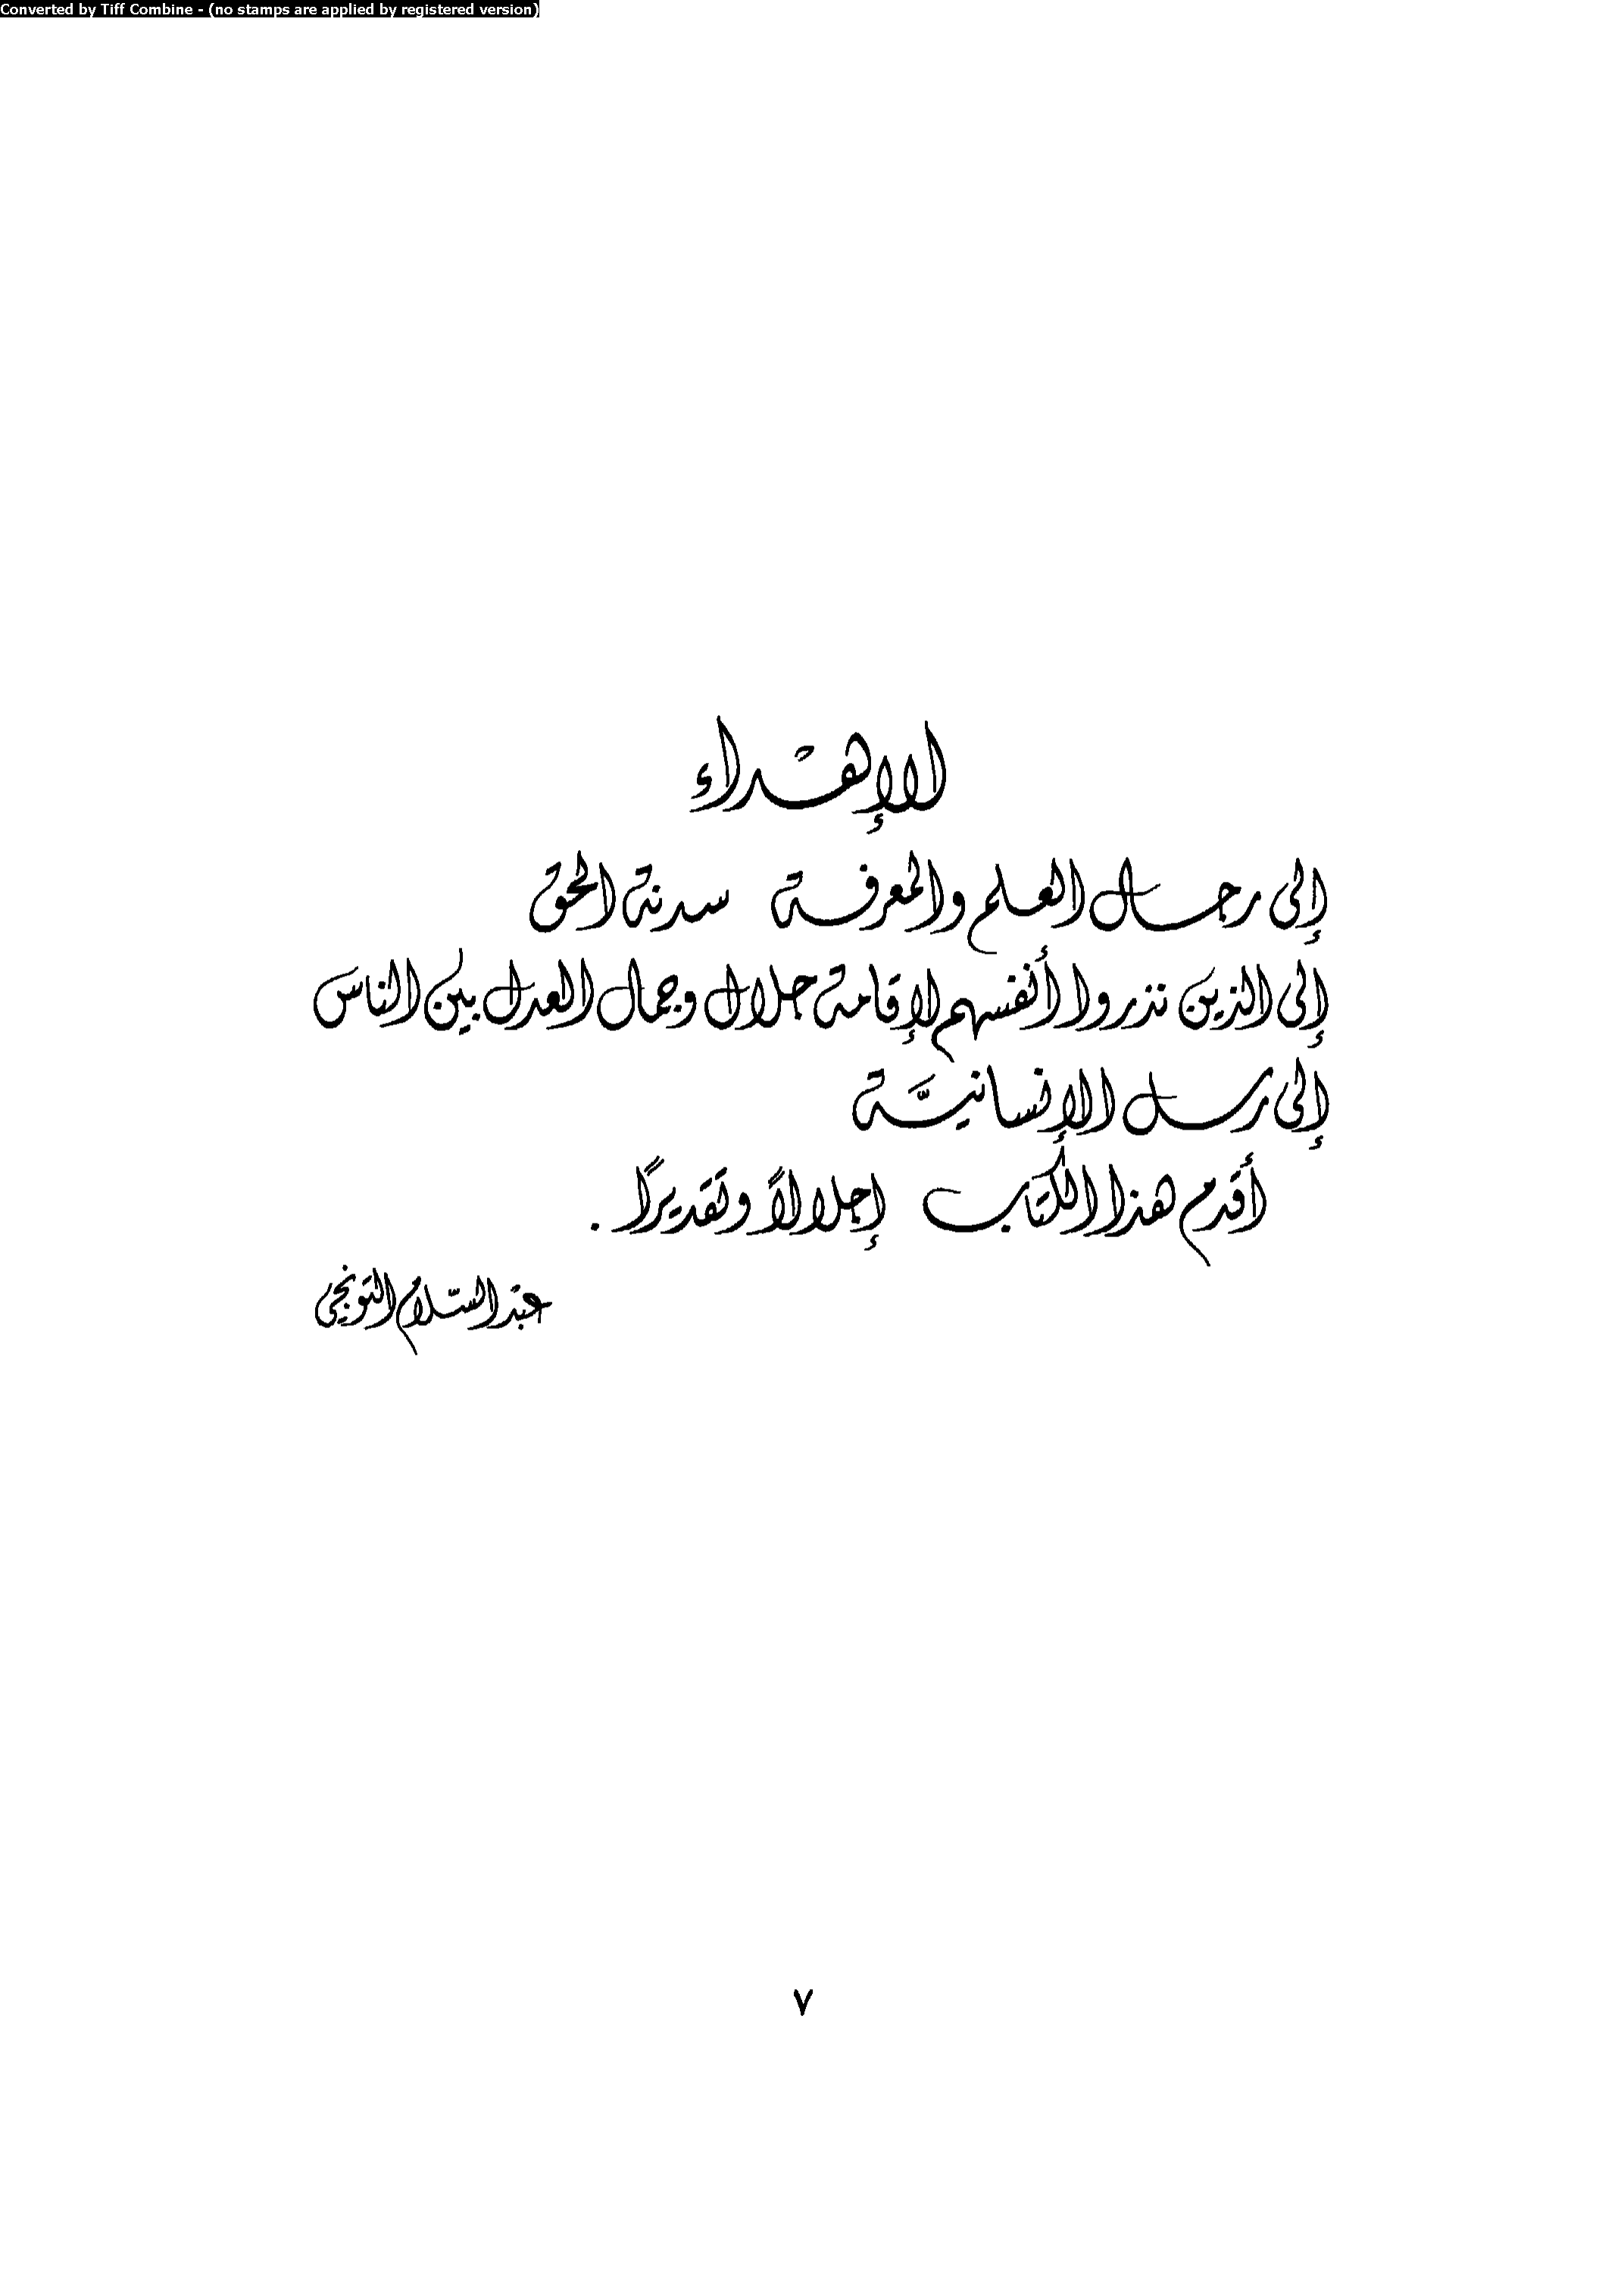 Converted by Tiff Combine - (no stamps are applied by registered version)
الإهداء
إلى رجال العلم والمعرفة سدنة الحق
إلى الذين نذروا أنفسهم لإقامة جلال وجمال العدل بين الناس
إلى رسل الإنسانيَّة
أقدم هذا الكتاب إجلالاً وتقديراً .
عبد السّلام التونجي
٧